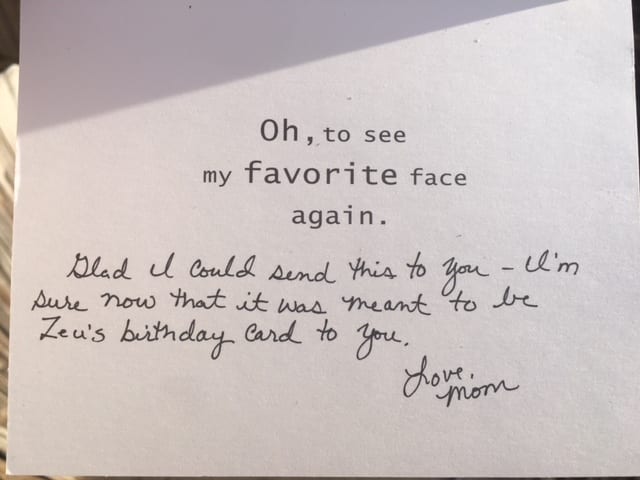 Oh, to see
my favorite face
again.
Glad I could send this to you – I'm
sure now that it was meant to be
Zeu's birthday card to you.
Love,
Mom